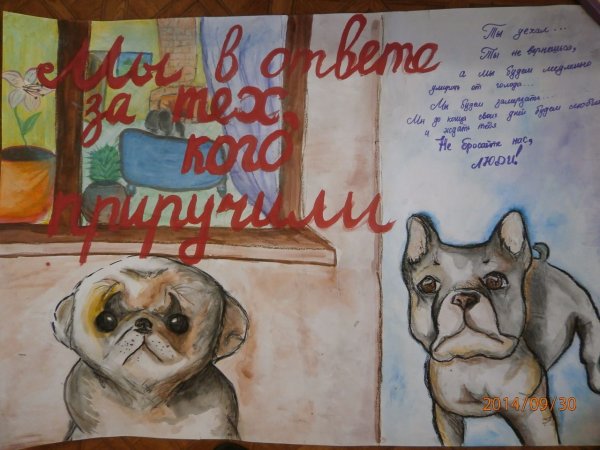 Мы в ответе
за тех,
кого
приручили
Ты уехал...
Ты не вернешься,
а мы будем медленно
умирать от голода...
Мы будем замерзать...
Мы до конца своих дней будем любить
и ждать тебя
Не бросайте нас,
ЛЮДИ!
2014/09/30